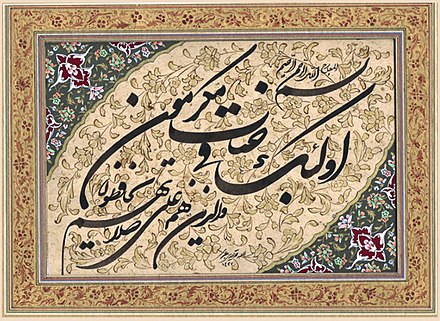 بسم الله الرحمن الرحيم
اولئك فى جنات مكرمون
والذين هم على صلاتهم يحافظون